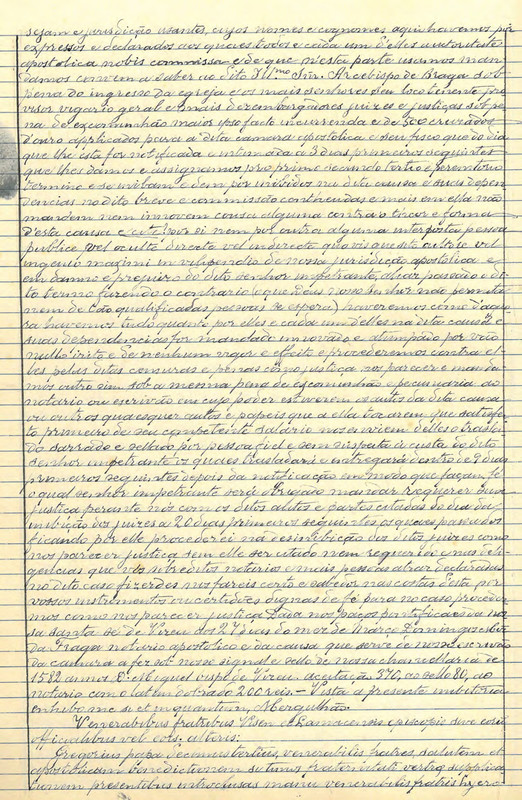 sejam e jurisdicção usantes, cujos nomes e cognomes aqui havemos por
expressos e declarados aos quaes todos e cada um d'elles autoritate
apostolica nobis commissa e de que n'esta parte usamos man-
damos convem a saber ao dito Ill.mo Snr. Arcebispo de Braga sob
pena do ingresso da egreja e os mais senhores seu locotenente pro-
visor vigario geral e mais dezembargadores juizes e justiças sob pe
na de excomunhão maior ipso facto incurrenda e de 500 cruzados
d'ouro applicados para a dita camara apostolica e seu fisco que do dia
que lhe esta for notificada e intimada a 3 dias primeiros seguintes
que lhes damos e assignamos pro primo secundo tertio e peremtorio
termino e se inibam e dem por inibidos na dita causa e suas depen
dencias no dito breve e commissão conteudas e mais em ella não
mandem nem innovem cousa alguma contra o theor e forma
d'esta causa e por si nem por outra alguma interposta pessoa
publice vel oculte directe vel indirecte quovis quesito
ingenio maximi in vilipendio de nossa jurisdicção apostolica e
em damno e prejuizo do dito senhor impetrante, aliaz passado o di-
to termo fazendo o contrario (o que Deus nosso senhor não permitta
nem de tão qualificadas pessoas se espera) haveremos como d'ago-
ra havemos tudo quanto por elles e cada um d'elles na dita causa e
suas dependencias for mandado innovado e atemptado por vaio
nullo irito e de nenhum vigor e effeito e procederemos contra el-
les pelas ditas censuras e penas como justiça nos parecer e manda
mos outro sim sob a mesma pena de excomunhão e pecuniaria ao
notario ou escrivão em cujo poder estiverem os autos da dita causa
ou outros quaesquer autos e papeis que a ella tocarem que satisfei-
to primeiro de seu competente salario nos enviem d'elles o trasla-
do sarrado e sellado por pessoa fiel e sem suspeita á custa do dito
senhor impetrante os quaes trasladará e entregará dentro de 9 dias
primeiros seguintes depois da notificação em modo que façam fé
o qual senhor impetrante será obrigado mandar requerer sua
justiça perante nós com os ditos autos e partes citadas do dia da
inibição dos juizes a 20 dias primeiros seguintes os quaes passados
ficando por elle procederei na desinibição dos ditos juizes como
nos parecer justiça sem elle ser citado nem requerido e nas deli-
gencias que vós subreditos notarios e mais pessoas atraz declaradas
no dito caso fizerdes nos fareis certo e sabedor nas costas d'esta por
vossos instrumentos ou certidões dignas de fé para no caso proceder-
mos como nos parecer justiça. Dada nos paços pontificaes da nos-
sa santa sé de Vizeu aos 27 dias do mez de Março Domingos
da Fraga notario apostolico e da causa que serve de nosso escrivão
da camara a fez sob nosso signal e sello de nossa chancellaria de
1582 annos. D. Miguel visp.º de Vizeu aceitação 370, ao sello 80, ao
notario com o latim dotrado 200 reis. – Vista a presente inibitoria
em hibo me si et in quantum, Mergulhão.
Venerabilibus fratribus Visen. et Lamacensis episcopis sive eorum
officialibus vel eorum alteris:
Gregorius papa decimus tertius, venerabilis fratres, salutem et
apostolicam benedictionem sutimus fraternitati vestre supplica-
tionem presentibus introclusas manu venerabilis fratris